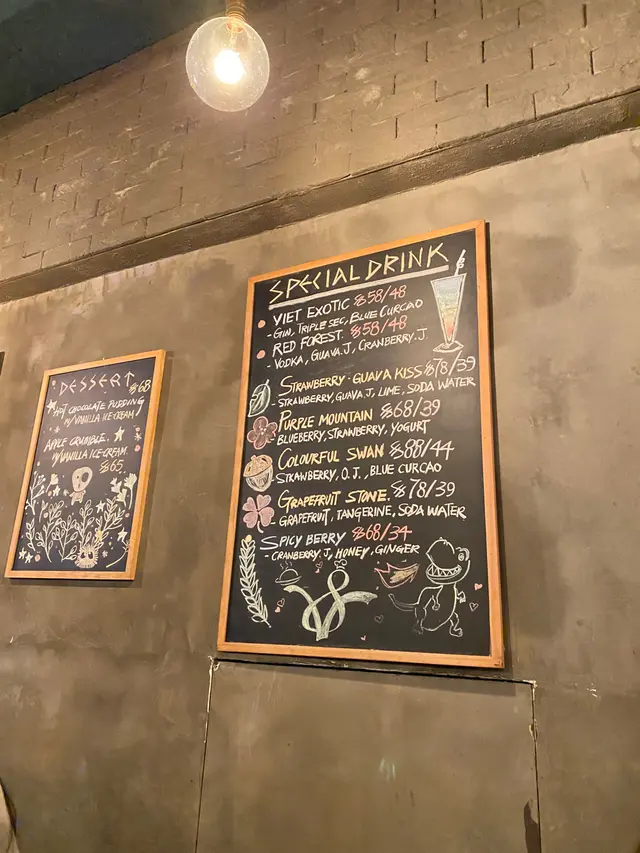 DESSERT $68
HOT CHOCOLATE PUDDING
W/ VANILLA ICE-CREAM
APPLE CRUMBLE.
W/ VANILLA ICE-CREAM
$65
SPECIAL DRINK
VIET EXOTIC $58/48
- GIN, TRIPLE SEC, BLUE CURCAO
RED FOREST. $58/48
- VODKA, GUAVA.J, CRANBERRY.J.
STRAWBERRY-GUAVA KISS $78/39
- STRAWBERRY, GUAVA.J, LIME, SODA WATER
PURPLE MOUNTAIN $68/39
BLUEBERRY, STRAWBERRY, YOGURT
COLOURFUL SWAN $88/44
STRAWBERRY, O.J., BLUE CURCAO
GRAPEFRUIT STONE. $78/39
- GRAPEFRUIT, TANGERINE, SODA WATER
SPICY BERRY $68/34
- CRANBERRY.J, HONEY, GINGER